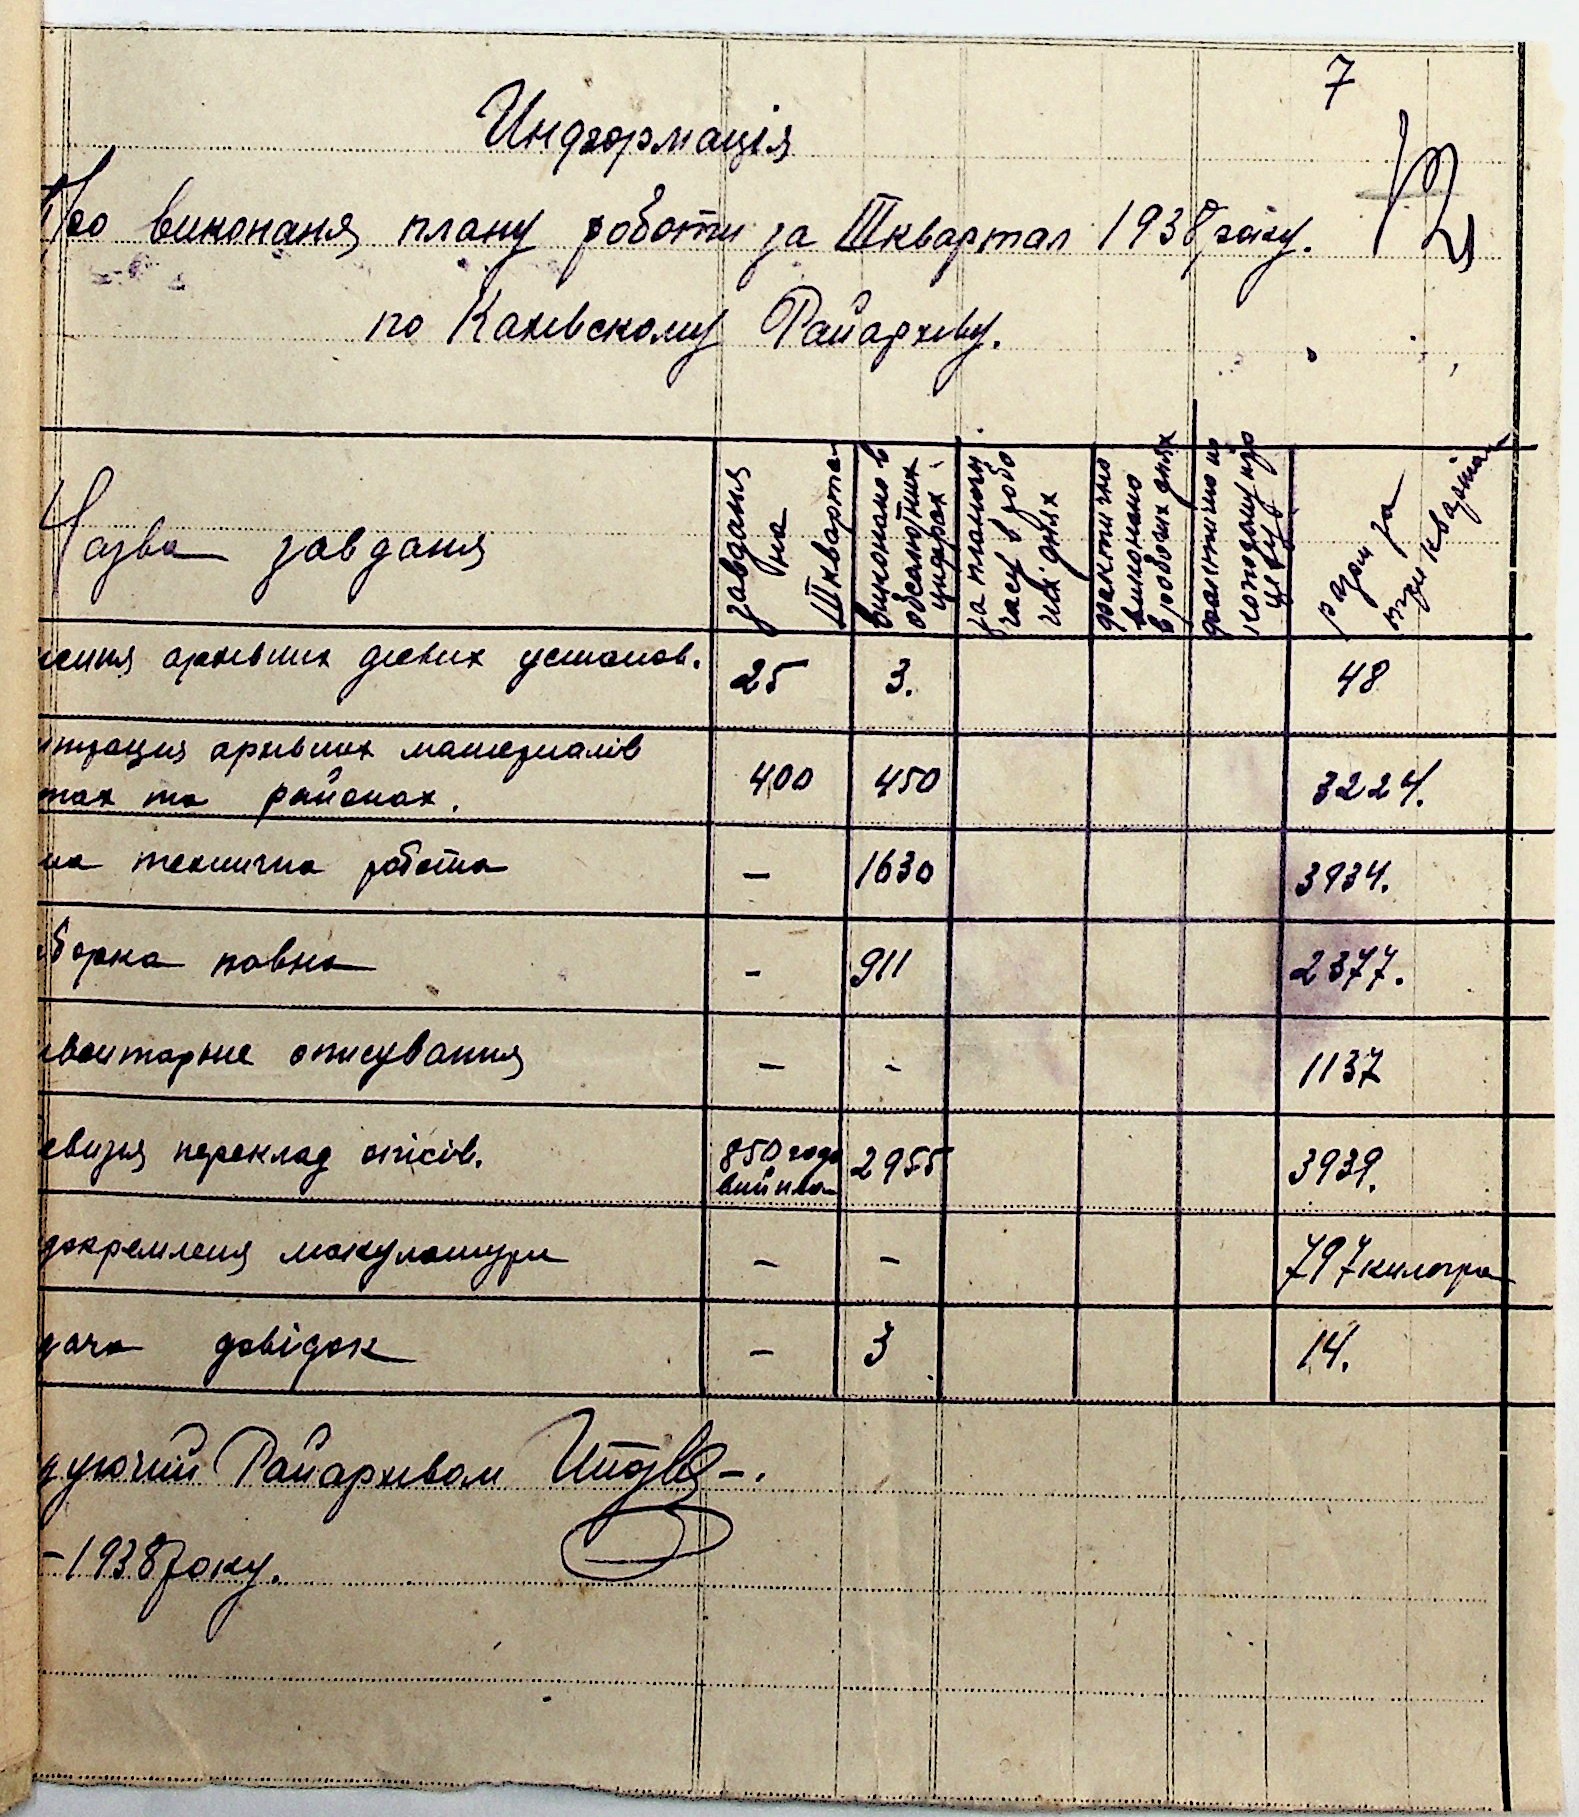 7
Информація
Про виконаня плану роботи за III квартал 1938 року.
по Кахівскому Райархіву.
Назва завданя
завданя на III квартал
виконано в абсалютних цифрах
за планом часу в робочих днях
фактично виконано в робочих днях
разом за три квартали
архівних діевих установ. 25 3. 48
архівних материалів
та районах. 400 450 3224.
на технична робота – 1630 3934.
борка повна – 911 2377.
вентарне описування – – 1137
евизия переклад описів. 850 2955 3939.
докремленя макулатури – – 797 килогра
дача довідок – 3 14.
дуючий Райархивом
– 1938 року.